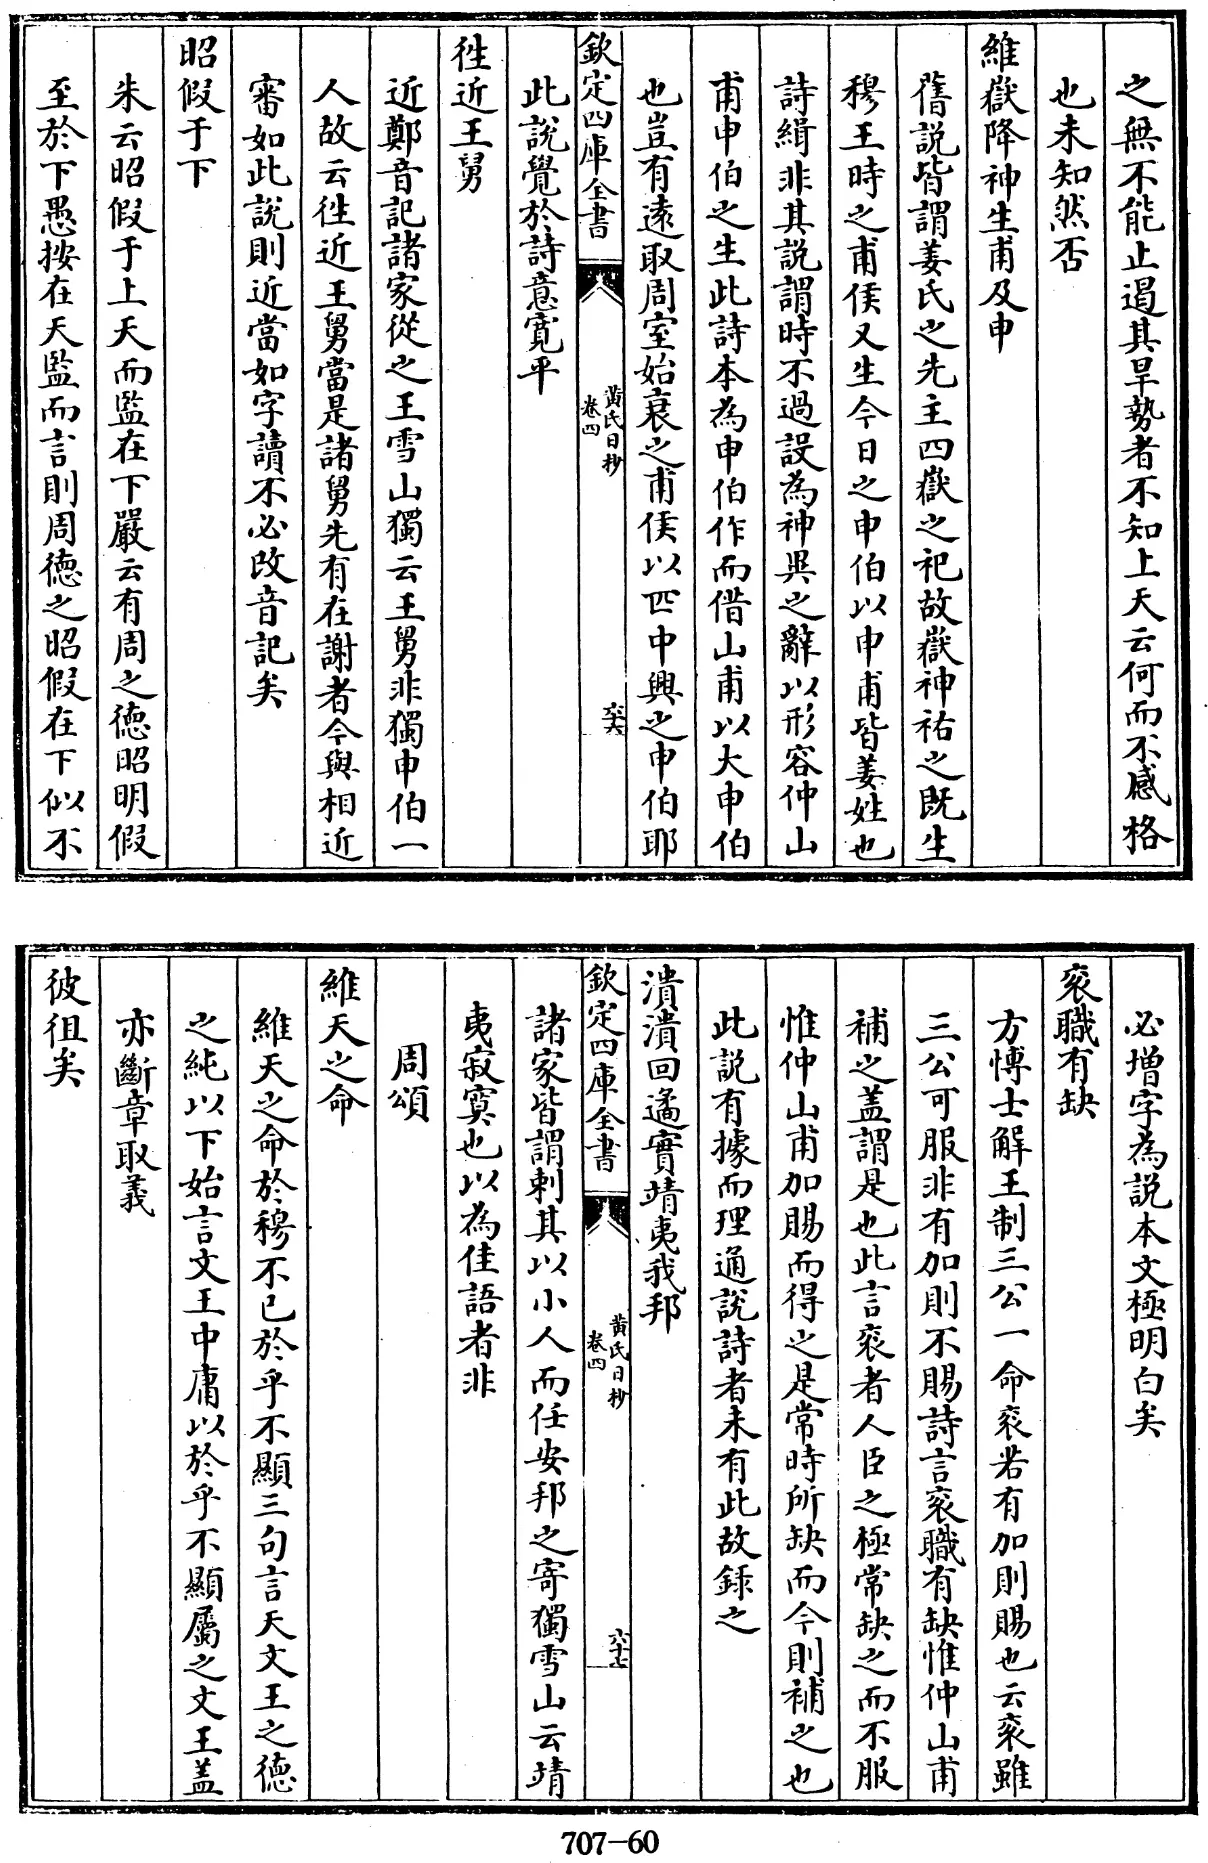 之無不能止遏其旱勢者不知上天云何而不感格
也未知然否
維嶽降神生甫及申
舊説皆謂姜氏之先主四嶽之祀故嶽神祐之既生
穆王時之甫侯又生今日之申伯以申甫皆姜姓也
詩緝非其説謂時不過設為神異之辭以形容仲山
甫申伯之生此詩本為申伯作而借山甫以大申伯
也豈有遠取周室始衰之甫侯以匹中興之申伯耶
欽定四庫全書
黄氏日抄
卷四
六十六
此説覺於詩意寛平
徃近王舅
近鄭音記諸家從之王雪山獨云王舅非獨申伯一
人故云徃近王舅當是諸舅先有在謝者今與相近
審如此説則近當如字讀不必改音記矣
昭假于下
朱云昭假于上天而監在下嚴云有周之徳昭明假
至於下愚按在天監而言則周徳之昭假在下似不
必增字為説本文極明白矣
衮職有缺
方愽士解王制三公一命衮若有加則賜也云衮雖
三公可服非有加則不賜詩言衮職有缺惟仲山甫
補之盖謂是也此言衮者人臣之極常缺之而不服
惟仲山甫加賜而得之是常時所缺而今則補之也
此説有據而理通説詩者未有此故録之
潰潰回遹實靖夷我邦
欽定四庫全書
黄氏日抄
卷四
六十七
諸家皆謂刺其以小人而任安邦之寄獨雪山云靖
夷寂寞也以為佳語者非
周頌
維天之命
維天之命於穆不已於乎不顯三句言天文王之徳
之純以下始言文王中庸以於乎不顯屬之文王盖
亦斷章取義
彼徂矣
707-60